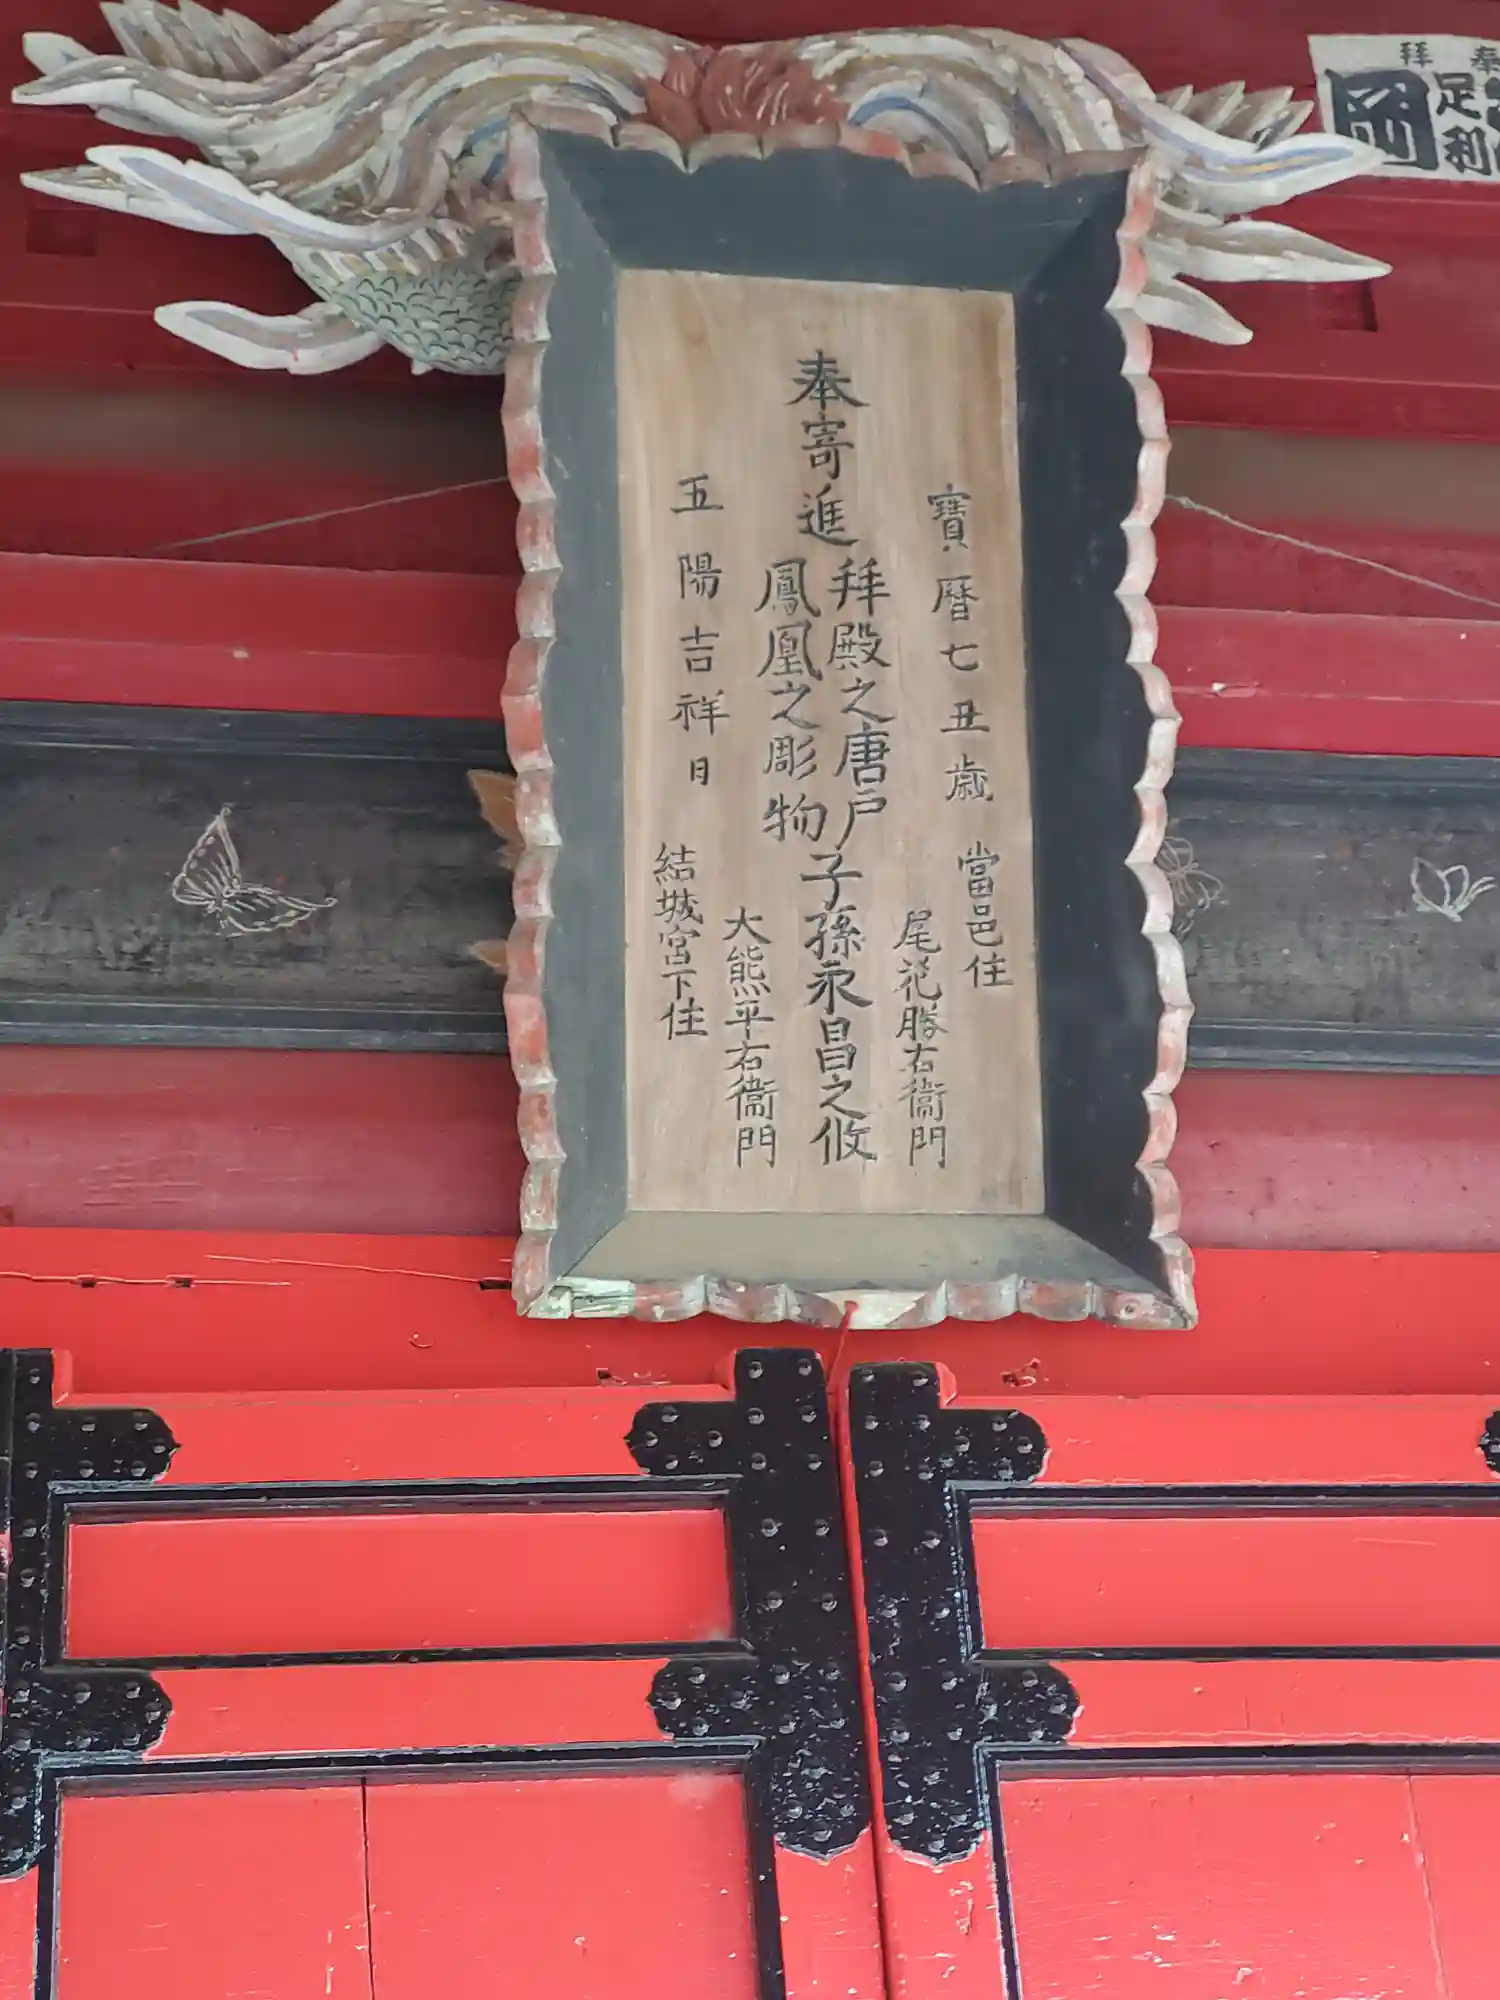 寶曆七丑歳
當邑住
尾花勝右衛門
奉寄進
拜殿之唐戸
鳳凰之彫物
子孫永昌之攸
五陽吉祥日
大熊平右衛門
結城宮下住
奉
拜
足利
岡